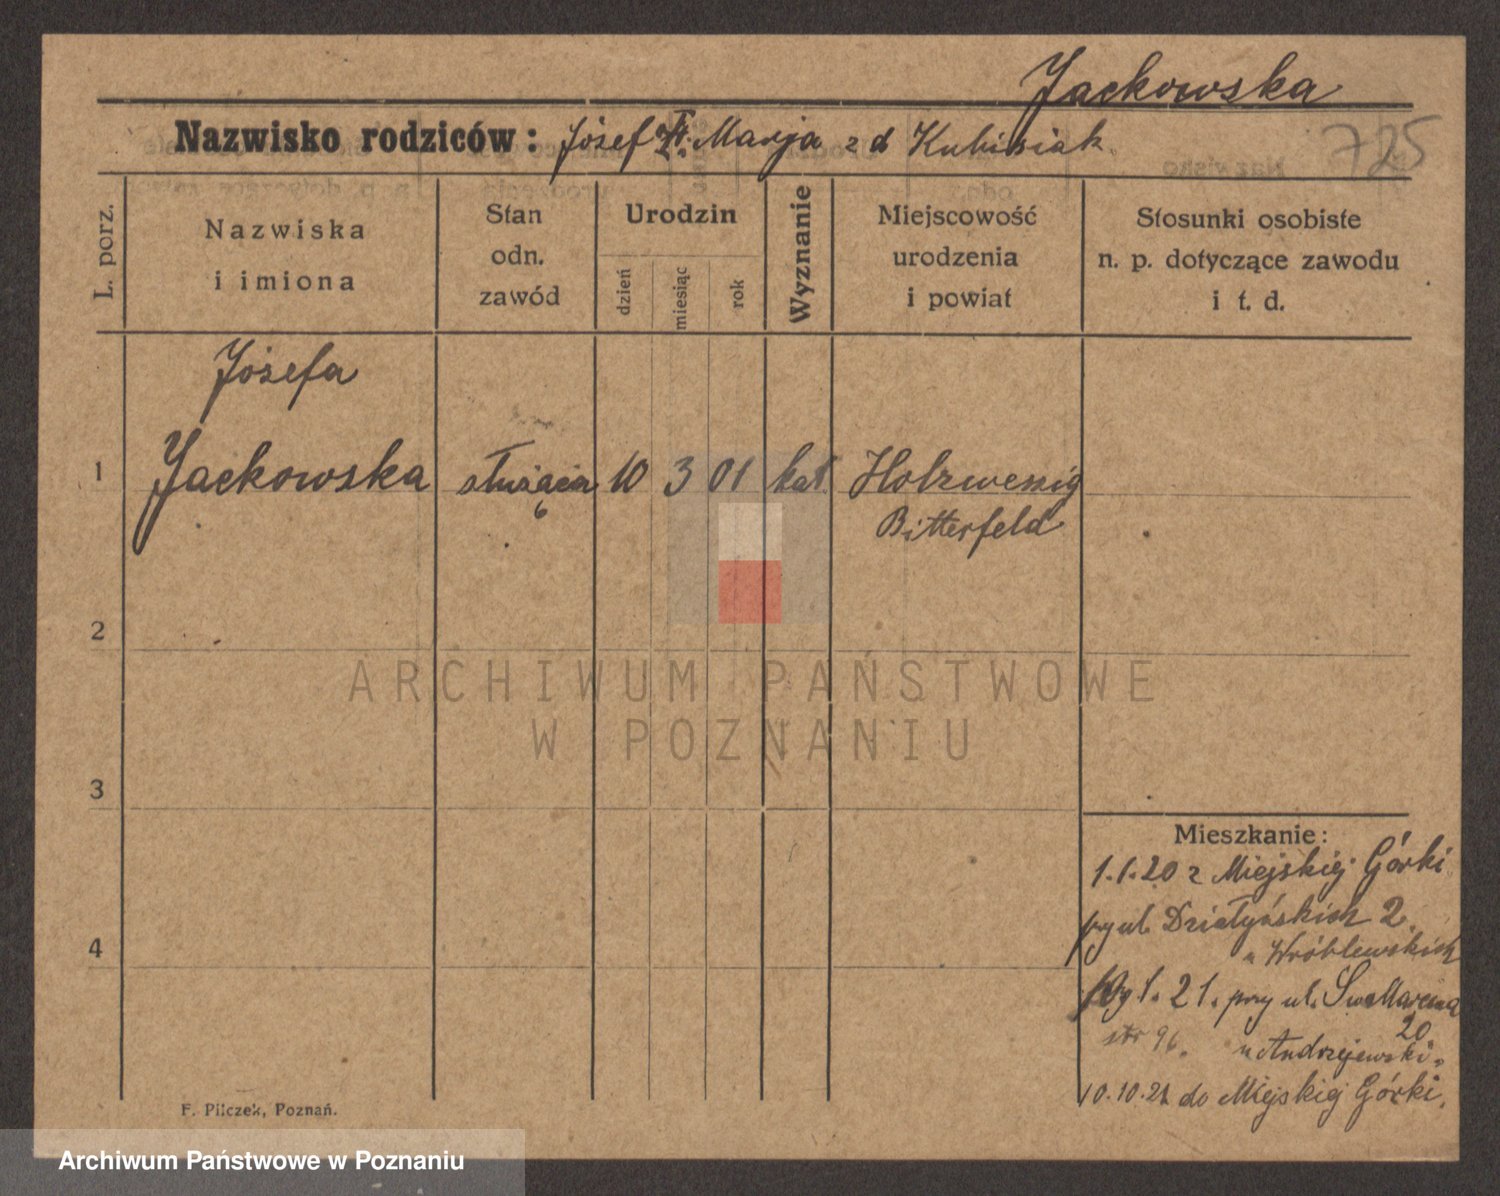 Jackowska
Nazwisko rodziców: Józef Marja z d Kubisiak
725
L. porz.
Nazwiska
i imiona
Stan
odn.
zawód
Urodzin
dzień
miesiąc
rok
Wyznanie
Miejscowość
urodzenia
i powiat
Stosunki osobiste
n. p. dotyczące zawodu
i t. d.
Józefa
1 Jackowska służąca 10 3 01 kat. Holzweissig
Bitterfeld
2
3
4
ARCHIWUM PAŃSTWOWE
W POZNANIU
Mieszkanie:
1.1.20 z Miejskiej Górki
przy ul. Działyńskich 2.
u Wróblewskich
1. 21. przy ul. Sw Marcina
20
str 96. u Andrzejewski
10.10.21 do Miejskiej Górki.
F. Pilczek, Poznań.
Archiwum Państwowe w Poznaniu